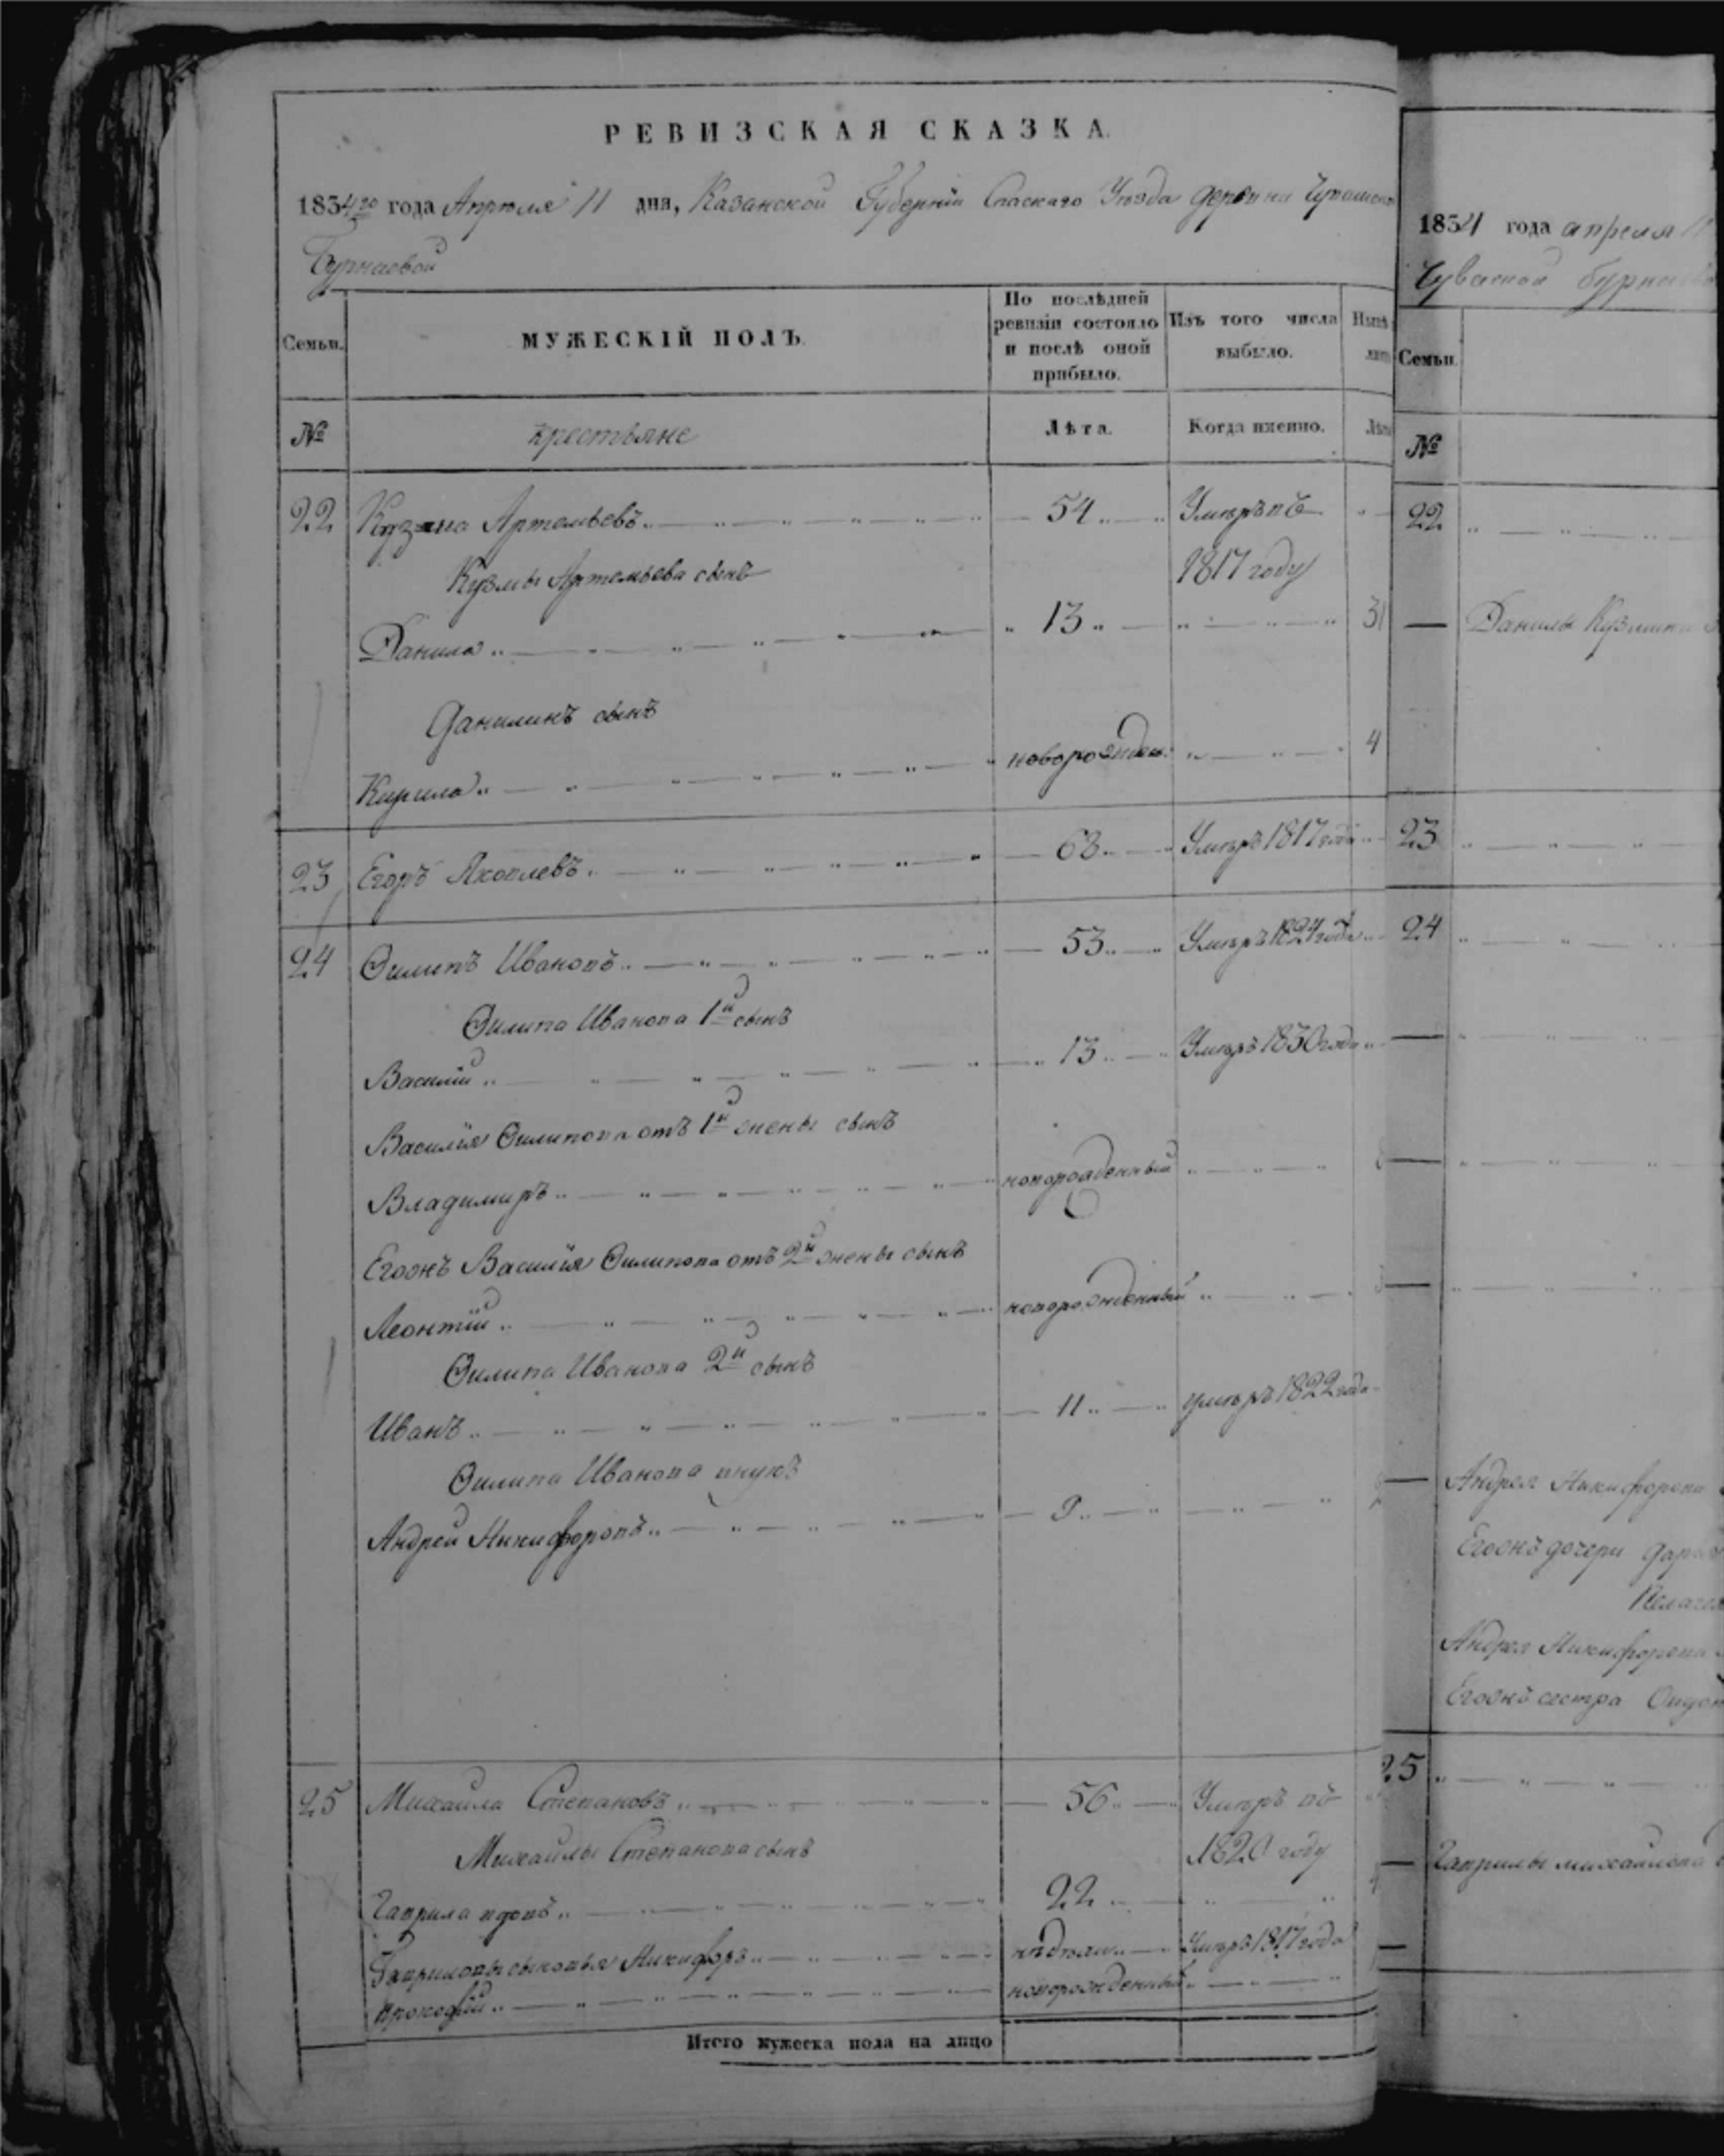 РЕВИЗСКАЯ СКАЗКА.
1834го года Апреля 11 дня, Казанской Губернiи Спаскаго Уезда деревни
Бурнаевой
Семьи.
МУЖЕСКІЙ ПОЛЪ.
По послѣдней ревизіи состояло и послѣ оной прибыло.
Изъ того числа выбыло.
№
крестьяне
Лѣта.
Когда именно.
22 Кузма Артемьевъ 54 Умеръ въ
Кузмы Артемьева сынъ 1817 году
Данила 13 31
Данилинъ сынъ
Кирила новорожден. 4
23 Егоръ Яковлевъ 63 Умеръ 1817 года
24 Филипъ Ивановъ 53 Умеръ 1824 года
Филипа Иванова 1й сынъ
Василiй 13 Умеръ 1830 года
Василiя Филипова отъ 1й жены сынъ
Владимиръ новорожденный
Егожъ Василiя Филипова отъ 2й жены сынъ
Леонтiй новорожденный
Филипа Иванова 2й сынъ
Иванъ 11 умеръ 1822 года
Филипа Иванова внукъ
Андрей Никифоровъ 9
25 Михайла Степановъ 56 Умеръ въ
Михайлы Степанова сынъ 1820 году
Гаврила вдовъ 22
Гавриловы сыновья Никифоръ недели Умеръ 1817 года
Прокофiй новорожденный
Итого мужеска пола на лицо
1834 года апреля 11
Чуваской
Семьи.
№
22
Данилы Кузмина
23
24
Андрея Никифорова
Егожъ дочери
Андрея Никифорова
Егожъ сестра
25
Гаврилы Михайлова